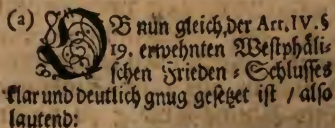 (a) OB nun gleich, der Art. IV. §
19. erwehnten Westphäli-
schen Frieden-Schlusses
klar und deutlich gnug gesetzet ist / also
lautend: